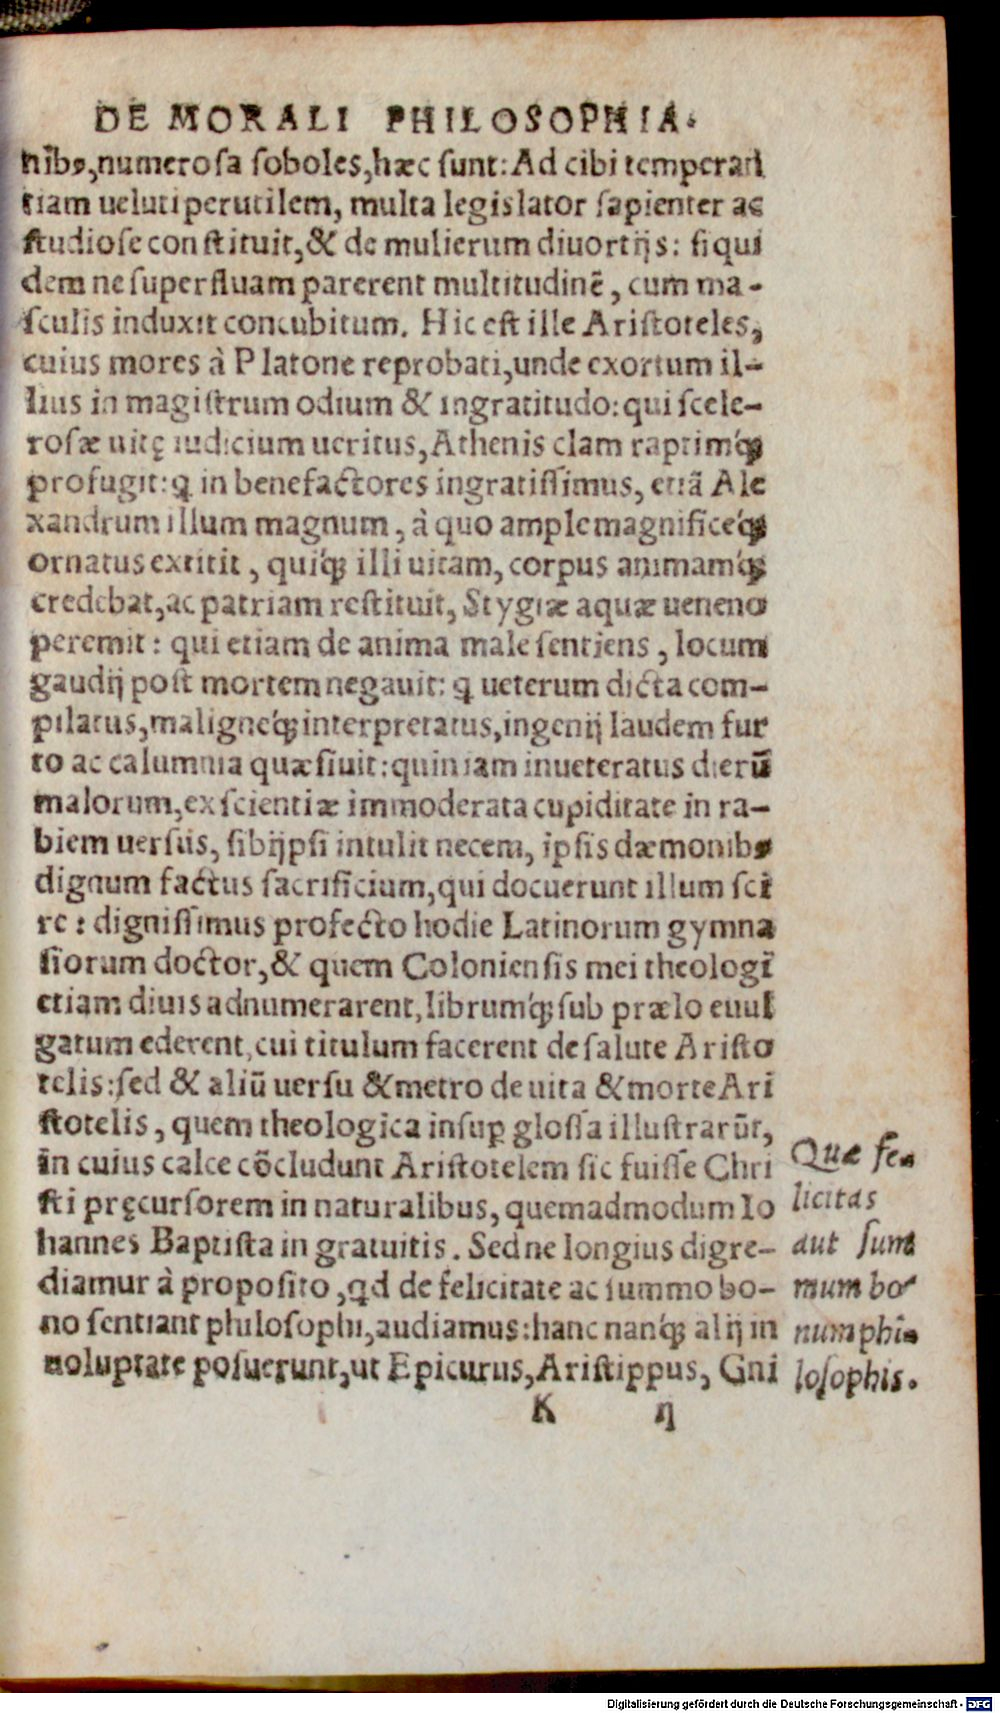 DE MORALI PHILOSOPHIA.
nib⁹, numerosa soboles, hæc sunt: Ad cibi temperan
tiam ueluti perutilem, multa legislator sapienter ac
studiose constituit, & de mulierum diuortijs: siqui
dem ne superfluam parerent multitudinẽ, cum ma-
sculis induxit concubitum. Hic est ille Aristoteles,
cuius mores à Platone reprobati, unde exortum il-
lius in magistrum odium & ingratitudo: qui scele-
rosæ uitę iudicium ueritus, Athenis clam raptimq́ꝫ
profugit: q in benefactores ingratissimus, etiã Ale
xandrum illum magnum, à quo ample magnificeq́ꝫ
ornatus extitit, quiq́ꝫ illi uitam, corpus animamq́ꝫ
credebat, ac patriam restituit, Stygiæ aquæ ueneno
peremit: qui etiam de anima male sentiens, locum
gaudij post mortem negauit: q ueterum dicta com-
pilatus, maligneq́ꝫ interpretatus, ingenij laudem fur
to ac calumnia quæsiuit: quin iam inueteratus dierũ
malorum, ex scientiæ immoderata cupiditate in ra-
biem uersus, sibijpsi intulit necem, ipsis dæmonib⁹
dignum factus sacrificium, qui docuerunt illum sci
re: dignissimus profecto hodie Latinorum gymna
siorum doctor, & quem Coloniensis mei theologi
etiam diuis adnumerarent, librumq́ꝫ sub prælo euul
gatum ederent, cui titulum facerent de salute Aristo
telis: sed & aliũ uersu & metro de uita & morte Ari
stotelis, quem theologica insuꝑ glossa illustrarũt,
in cuius calce cõcludunt Aristotelem sic fuisse Chri
sti pręcursorem in naturalibus, quemadmodum Io
hannes Baptista in gratuitis. Sed ne longius digre-
diamur à proposito, qd de felicitate ac summo bo-
no sentiant philosophi, audiamus: hanc nanq́ꝫ alij in
uoluptate posuerunt, ut Epicurus, Aristippus, Gni
Quæ fe-
licitas
aut sum
mum bo-
num phi-
losophis.
K ij
Digitalisierung gefördert durch die Deutsche Forschungsgemeinschaft - DFG